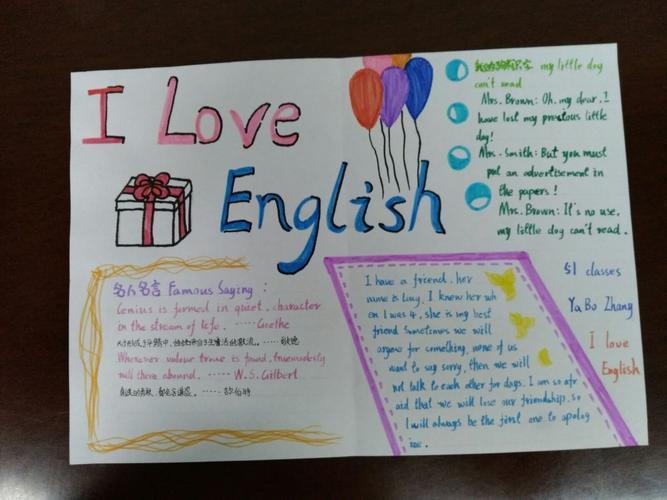 I Love
English
我的狗不识字 my little dog
can't read
Mrs. Brown: Oh, my dear. I
have lost my precious little
day!
Mrs. Smith: But you must
put an advertisement in
the papers!
Mrs. Brown: It's no use,
my little dog can't read.
名人名言 Famous Saying:
Genius is formed in quiet, character
in the stream of life. ----- Goethe
Wherever valour true is found, true modesty
will there abound. ----- W.S. Gilbert
I have a friend. her
name is Lucy. I knew her wh
en I was 4. she is my best
friend sometimes we will
argue for something, none of us
want to say sorry, then we will
not talk to each other for days. I am so afr
aid that we will lose our friendship. so
I will always be the first one to apolog
ize.
51 classes
Ya Bo Zhang
I love
English